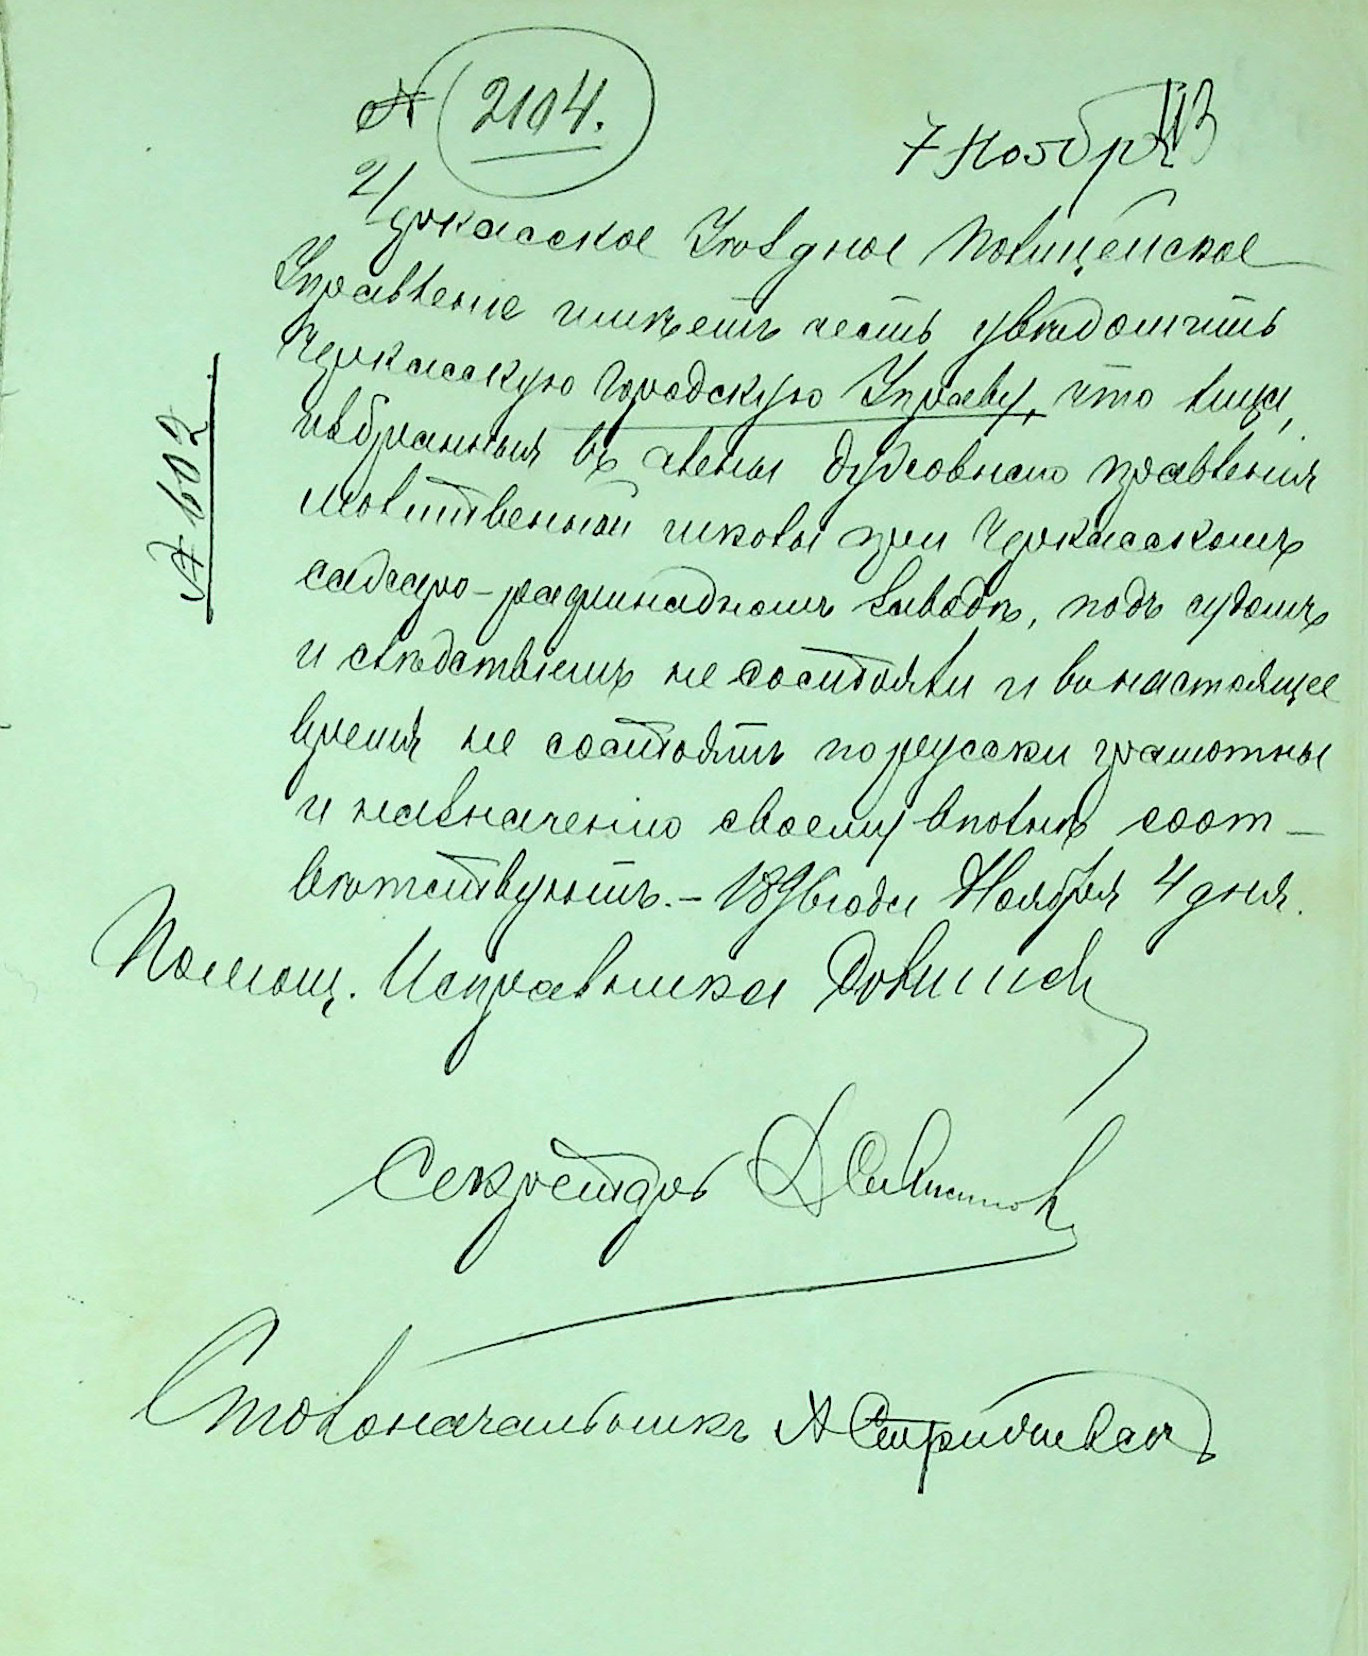 № 2104.
7 Ноября 113
Черкасское Уѣздное Полицейское
Управленіе имѣетъ честь увѣдомить
Черкасскую Городскую Управу, что лица,
избранныя въ члены духовнаго правленія
молитвенной школы при Черкасскомъ
сахаро-рафинадномъ заводѣ, подъ судомъ
и слѣдствіемъ не состояли и въ настоящее
время не состоятъ по русски грамотны
и назначенію своему вполнѣ соот-
вѣтствуютъ. – 1896 года Ноября 4 дня.
№ 1602
Помощ. Исправника
Секретарь
Столоначальникъ